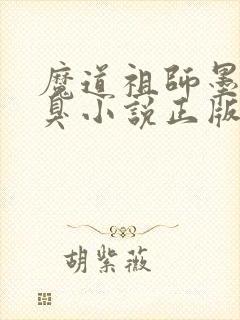 魔道祖師墨
臭小説正版
胡紫薇